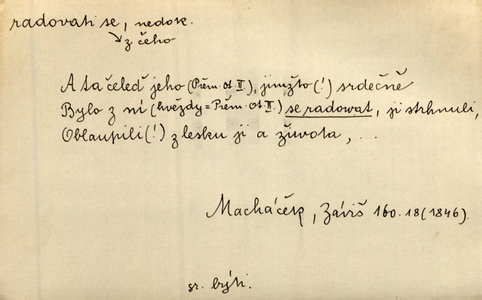 radovati se, nedok.
z čeho
A ta čeleď jeho (Přem. Ot. II), jimžto (!) srdečně
Bylo z ní (hvězdy = Přem. Ot. II.) se radovat, ji strhnuli,
Obloupili (!) z lesku ji a života, ..
Macháček, Záviš 160. 18 (1846).
sr. býti.